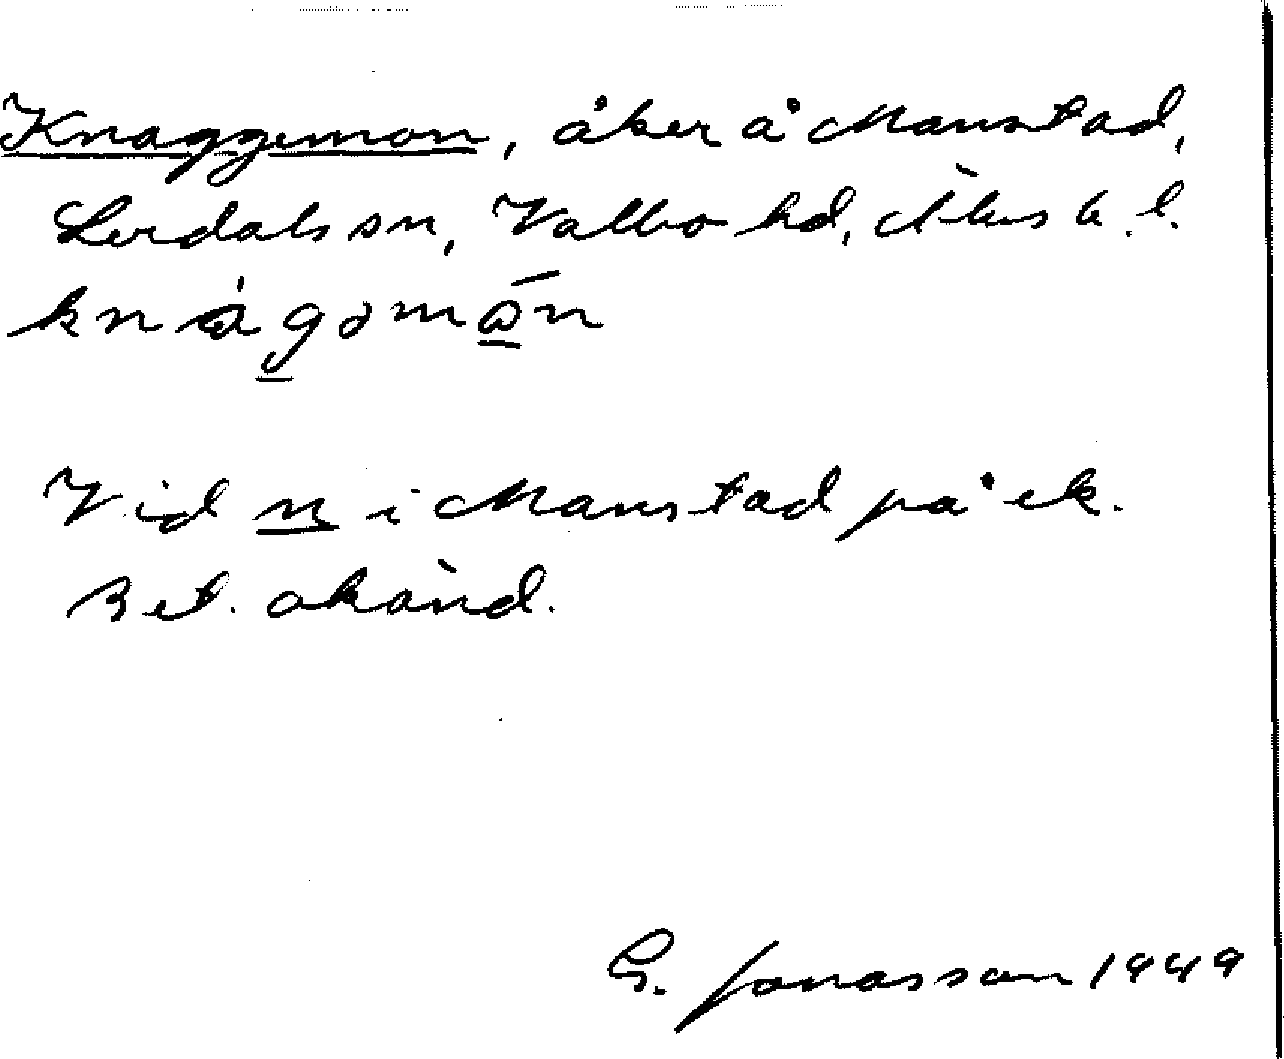 Knaggemon, åker å Manstad,
Lerdals sn, Valbo hd, Älvsb. l.
knágəmȯ́n
Vid n i Manstad på ek.
Bet. okänd.
G. Jonasson 1949